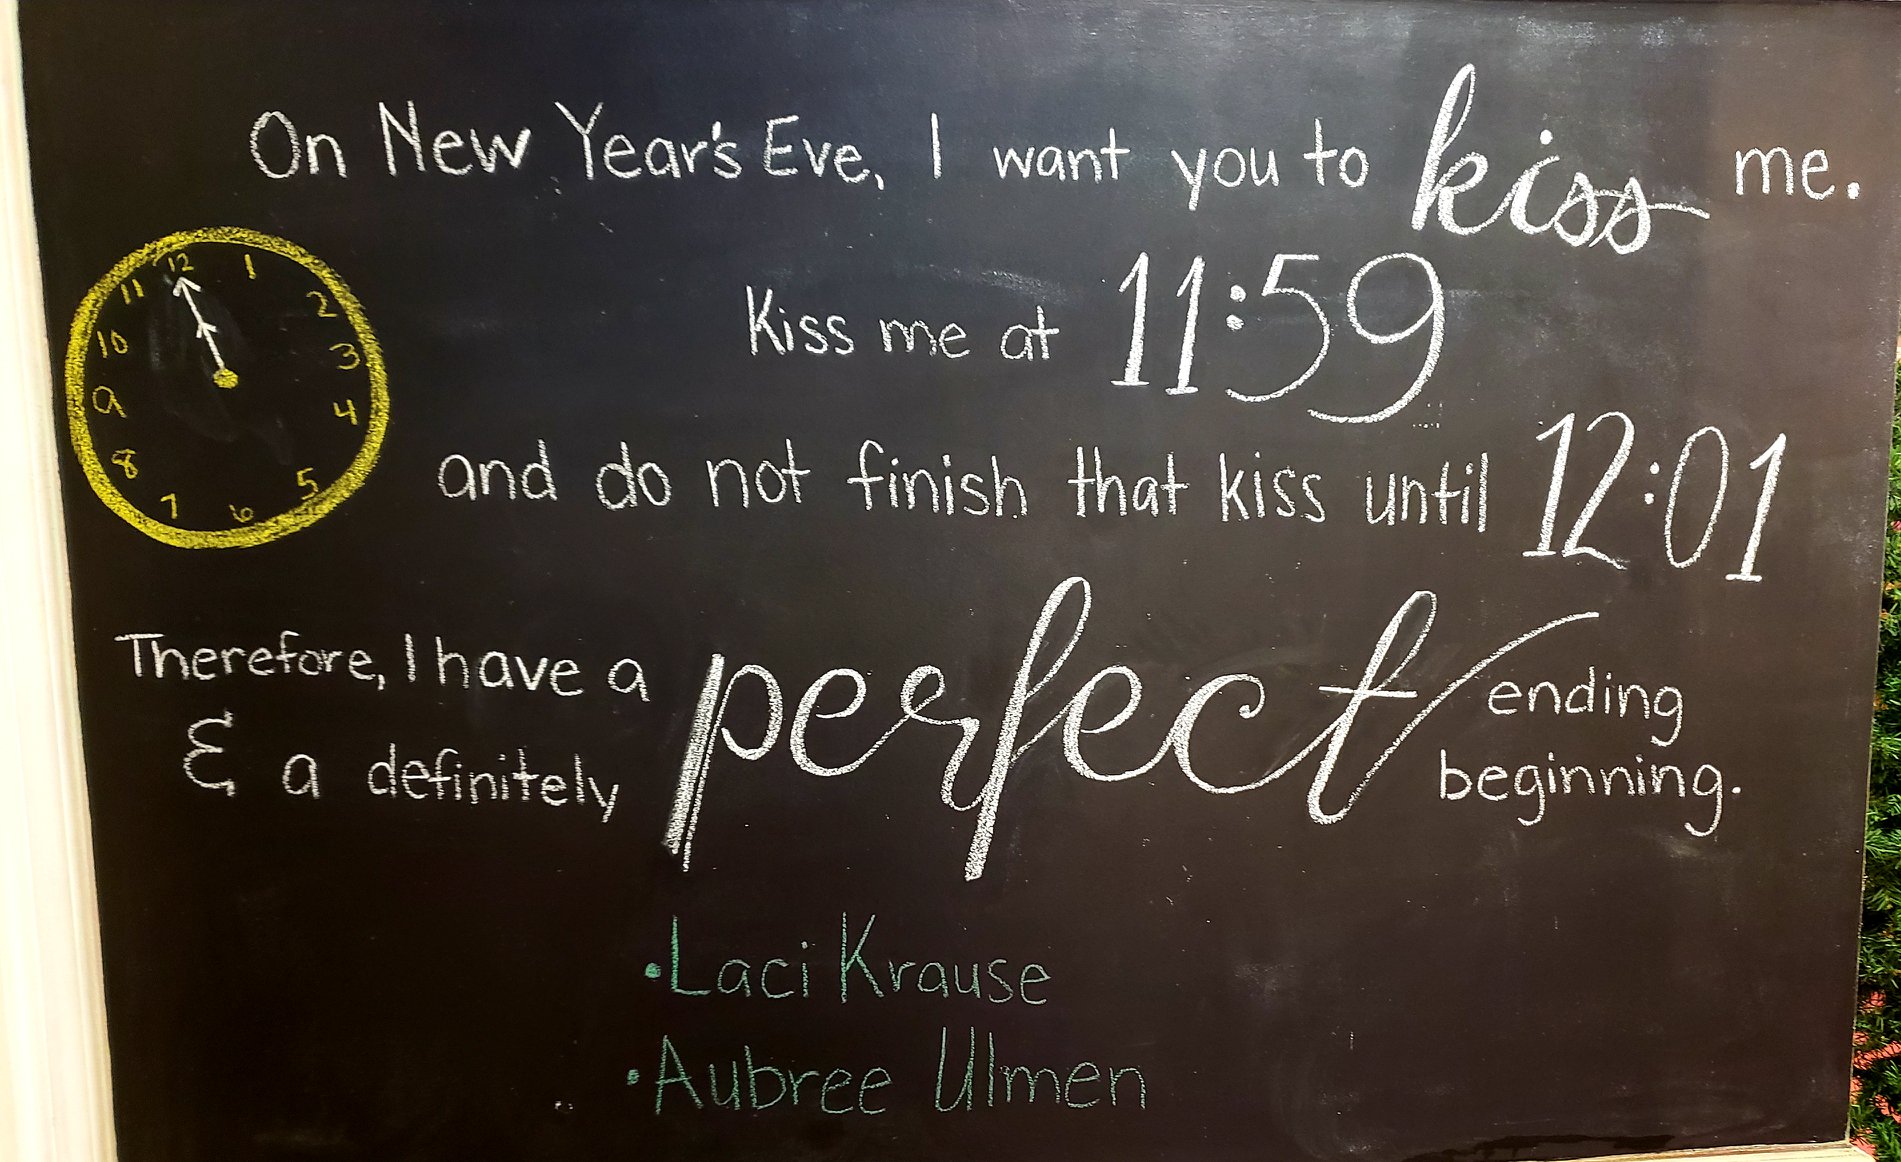 On New Year's Eve, I want you to kiss me.
12
1
2
3
4
5
6
7
8
9
10
11
Kiss me at 11:59
and do not finish that kiss until 12:01
Therefore, I have a perfect ending
& a definitely beginning.
•Laci Krause
•Aubree Ulmen